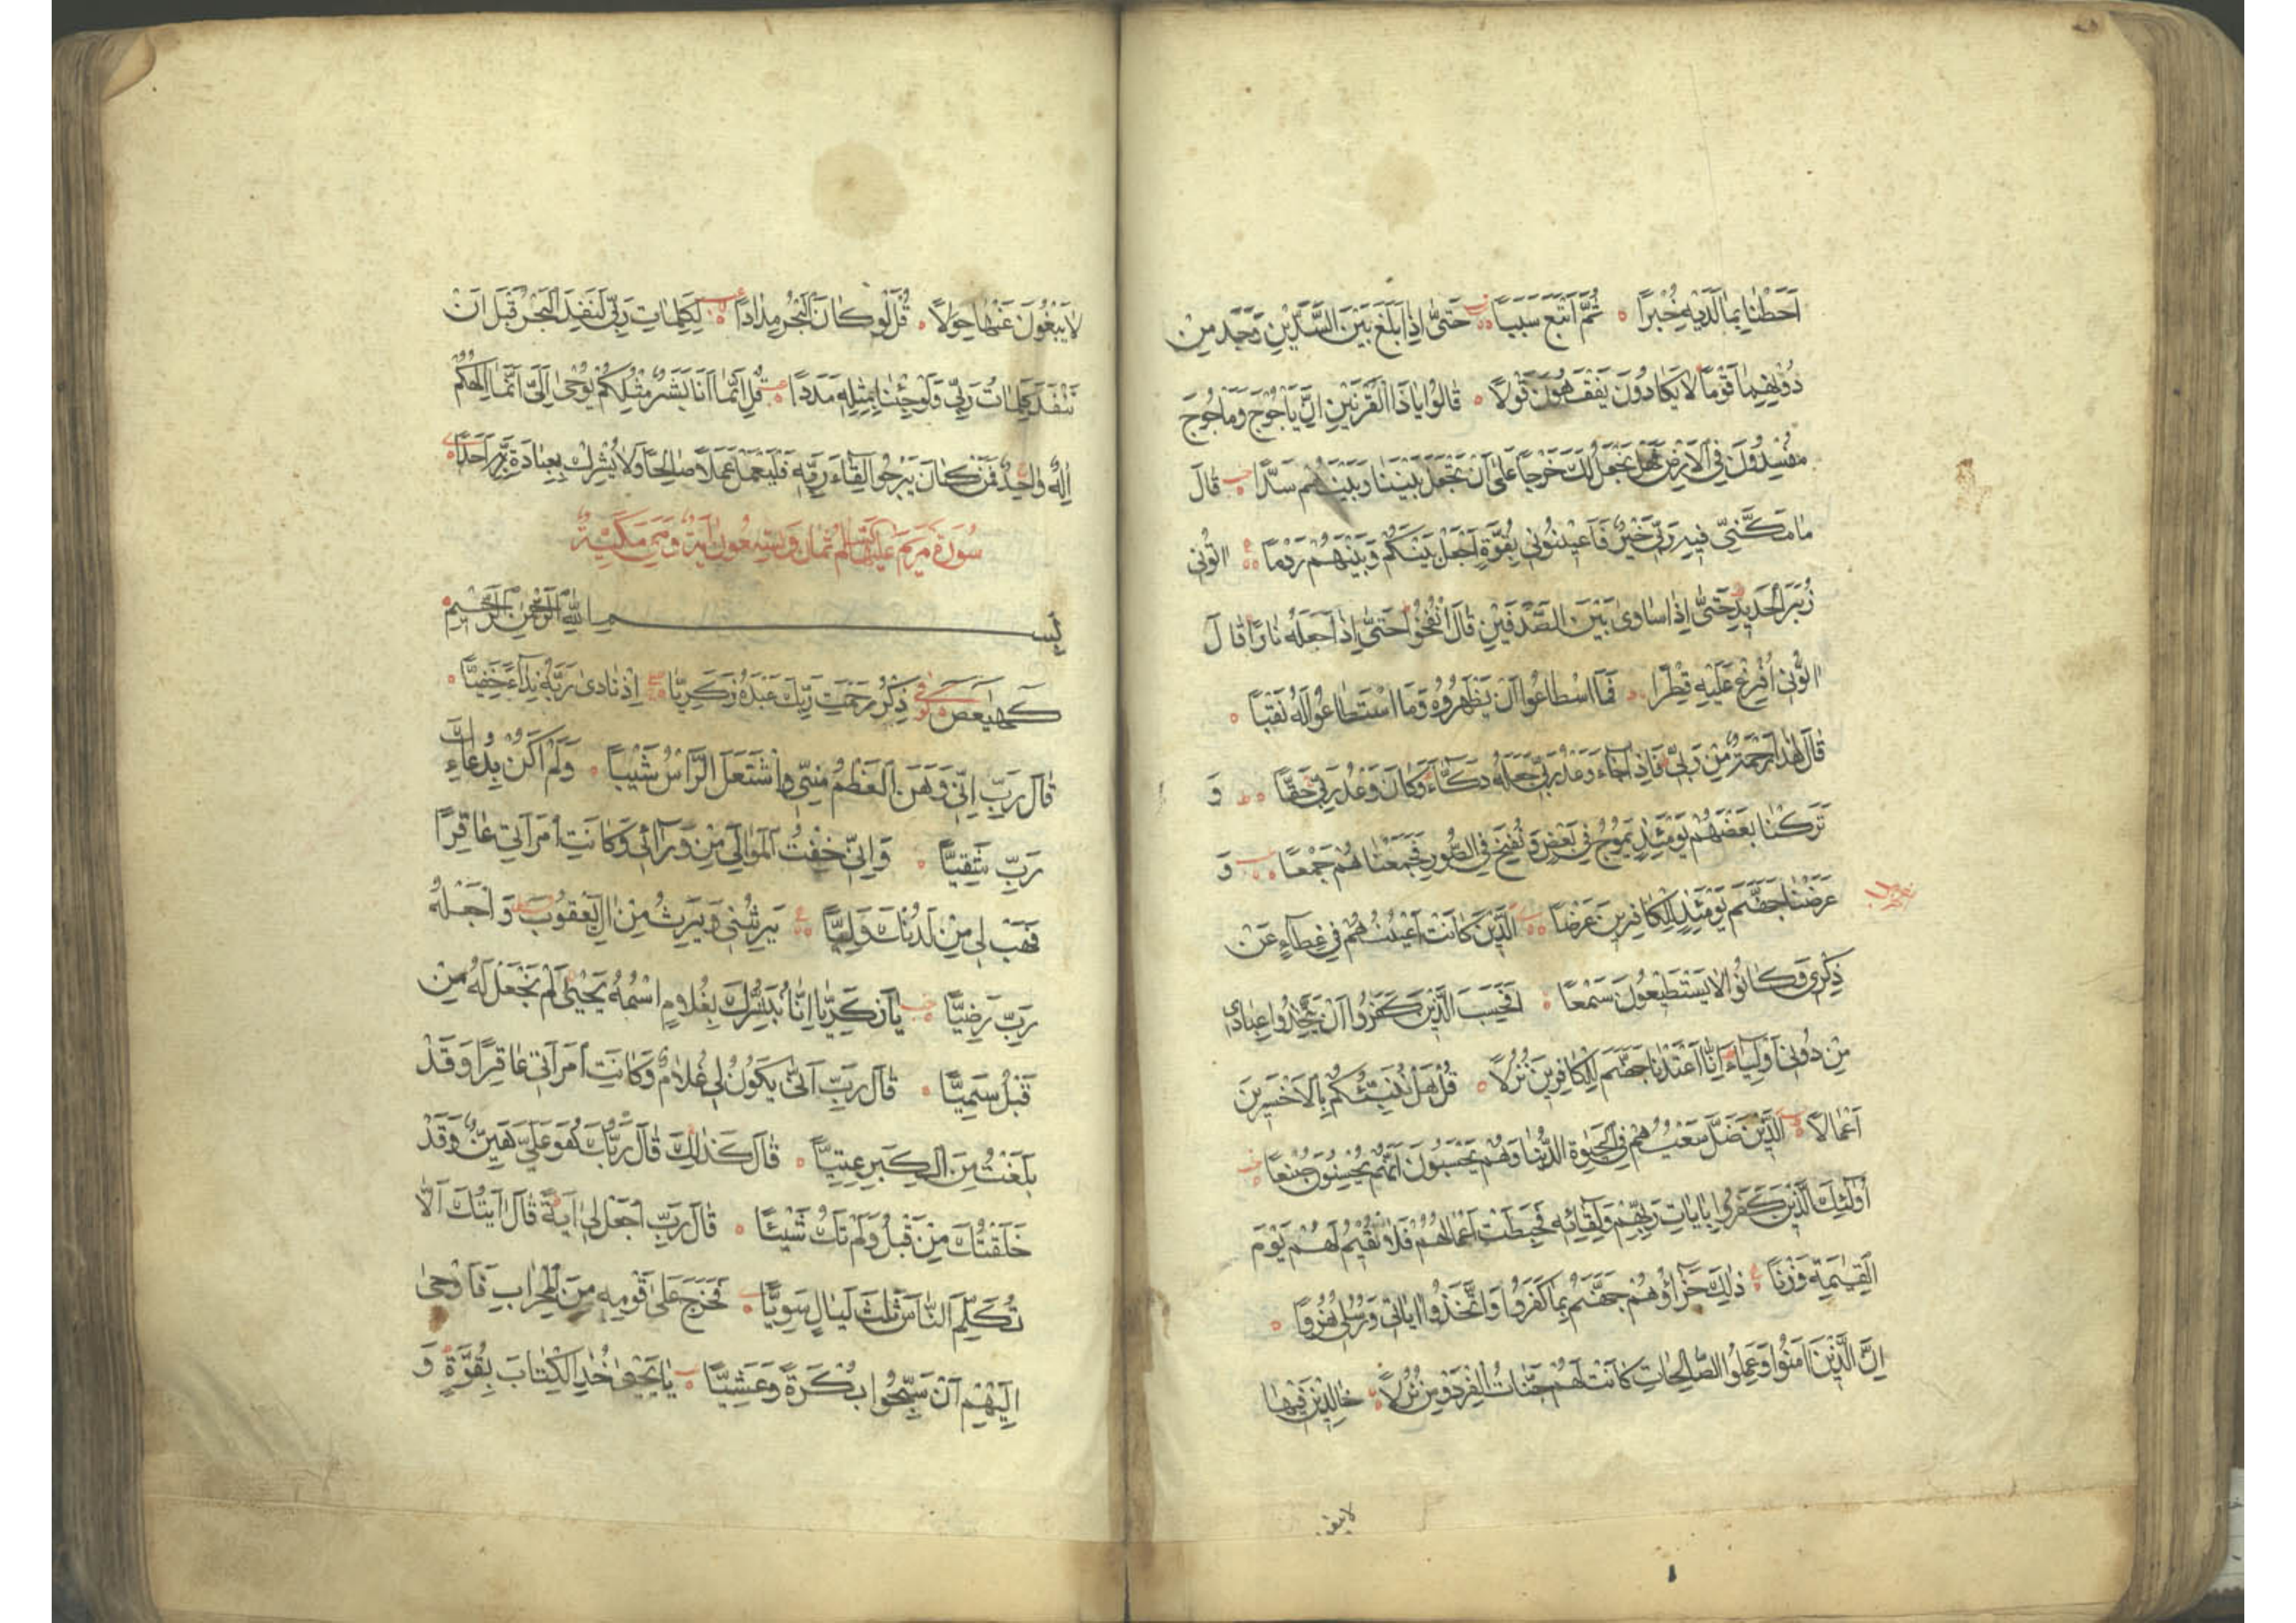 اَحَطْنَا بِمَا لَدَيْهِ خُبْرًا ثُمَّ اَتْبَعَ سَبَبًا حَتّٰى اِذَا بَلَغَ بَيْنَ السَّدَّيْنِ وَجَدَ مِنْ
دُوْنِهِمَا قَوْمًا لَا يَكَادُوْنَ يَفْقَهُوْنَ قَوْلًا قَالُوْا يَاذَا الْقَرْنَيْنِ اِنَّ يَأْجُوْجَ وَمَأْجُوْجَ
مُفْسِدُوْنَ فِي الْاَرْضِ فَهَلْ نَجْعَلُ لَكَ خَرْجًا عَلٰى اَنْ تَجْعَلَ بَيْنَنَا وَبَيْنَهُمْ سَدًّا قَالَ
مَا مَكَّنِّيْ فِيْهِ رَبِّيْ خَيْرٌ فَاَعِيْنُوْنِيْ بِقُوَّةٍ اَجْعَلْ بَيْنَكُمْ وَبَيْنَهُمْ رَدْمًا اٰتُوْنِيْ
زُبَرَ الْحَدِيْدِ حَتّٰى اِذَا سَاوٰى بَيْنَ الصَّدَفَيْنِ قَالَ انْفُخُوْا حَتّٰى اِذَا جَعَلَهُ نَارًا قَالَ
اٰتُوْنِيْ اُفْرِغْ عَلَيْهِ قِطْرًا فَمَا اسْطَاعُوْا اَنْ يَظْهَرُوْهُ وَمَا اسْتَطَاعُوْا لَهُ نَقْبًا
قَالَ هٰذَا رَحْمَةٌ مِنْ رَبِّيْ فَاِذَا جَاءَ وَعْدُ رَبِّيْ جَعَلَهُ دَكَّاءَ وَكَانَ وَعْدُ رَبِّيْ حَقًّا وَ
تَرَكْنَا بَعْضَهُمْ يَوْمَئِذٍ يَمُوْجُ فِيْ بَعْضٍ وَنُفِخَ فِي الصُّوْرِ فَجَمَعْنَاهُمْ جَمْعًا وَ
عَرَضْنَا جَهَنَّمَ يَوْمَئِذٍ لِلْكَافِرِيْنَ عَرْضًا اَلَّذِيْنَ كَانَتْ اَعْيُنُهُمْ فِيْ غِطَاءٍ عَنْ
ذِكْرِيْ وَكَانُوْا لَا يَسْتَطِيْعُوْنَ سَمْعًا اَفَحَسِبَ الَّذِيْنَ كَفَرُوْا اَنْ يَتَّخِذُوْا عِبَادِيْ
مِنْ دُوْنِيْ اَوْلِيَاءَ اِنَّا اَعْتَدْنَا جَهَنَّمَ لِلْكَافِرِيْنَ نُزُلًا قُلْ هَلْ نُنَبِّئُكُمْ بِالْاَخْسَرِيْنَ
اَعْمَالًا اَلَّذِيْنَ ضَلَّ سَعْيُهُمْ فِي الْحَيٰوةِ الدُّنْيَا وَهُمْ يَحْسَبُوْنَ اَنَّهُمْ يُحْسِنُوْنَ صُنْعًا
اُولٰئِكَ الَّذِيْنَ كَفَرُوْا بِاٰيَاتِ رَبِّهِمْ وَلِقَائِهِ فَحَبِطَتْ اَعْمَالُهُمْ فَلَا نُقِيْمُ لَهُمْ يَوْمَ
الْقِيٰمَةِ وَزْنًا ذٰلِكَ جَزَاؤُهُمْ جَهَنَّمُ بِمَا كَفَرُوْا وَاتَّخَذُوْا اٰيَاتِيْ وَرُسُلِيْ هُزُوًا
اِنَّ الَّذِيْنَ اٰمَنُوْا وَعَمِلُوا الصَّالِحَاتِ كَانَتْ لَهُمْ جَنَّاتُ الْفِرْدَوْسِ نُزُلًا خَالِدِيْنَ فِيْهَا
لا يبغون
لَا يَبْغُوْنَ عَنْهَا حِوَلًا قُلْ لَوْ كَانَ الْبَحْرُ مِدَادًا لِكَلِمَاتِ رَبِّيْ لَنَفِدَ الْبَحْرُ قَبْلَ اَنْ
تَنْفَدَ كَلِمَاتُ رَبِّيْ وَلَوْ جِئْنَا بِمِثْلِهِ مَدَدًا قُلْ اِنَّمَا اَنَا بَشَرٌ مِثْلُكُمْ يُوْحٰى اِلَيَّ اَنَّمَا اِلٰهُكُمْ
اِلٰهٌ وَاحِدٌ فَمَنْ كَانَ يَرْجُوْا لِقَاءَ رَبِّهِ فَلْيَعْمَلْ عَمَلًا صَالِحًا وَلَا يُشْرِكْ بِعِبَادَةِ رَبِّهِ اَحَدًا
سُوْرَةُ مَرْيَمَ عَلَيْهَا السَّلَمُ ثَمَانٌ وَتِسْعُوْنَ اٰيَةً وَهِيَ مَكِّيَّةٌ
بِسْمِ اللّٰهِ الرَّحْمٰنِ الرَّحِيْمِ
كٓهٰيٰعٓصٓ ذِكْرُ رَحْمَتِ رَبِّكَ عَبْدَهُ زَكَرِيَّا اِذْ نَادٰى رَبَّهُ نِدَاءً خَفِيًّا
قَالَ رَبِّ اِنِّيْ وَهَنَ الْعَظْمُ مِنِّيْ وَاشْتَعَلَ الرَّأْسُ شَيْبًا وَلَمْ اَكُنْ بِدُعَائِكَ
رَبِّ شَقِيًّا وَاِنِّيْ خِفْتُ الْمَوَالِيَ مِنْ وَرَائِيْ وَكَانَتِ امْرَاَتِيْ عَاقِرًا
فَهَبْ لِيْ مِنْ لَدُنْكَ وَلِيًّا يَرِثُنِيْ وَيَرِثُ مِنْ اٰلِ يَعْقُوْبَ وَاجْعَلْهُ
رَبِّ رَضِيًّا يَا زَكَرِيَّا اِنَّا نُبَشِّرُكَ بِغُلَامٍ اسْمُهُ يَحْيٰى لَمْ نَجْعَلْ لَهُ مِنْ
قَبْلُ سَمِيًّا قَالَ رَبِّ اَنّٰى يَكُوْنُ لِيْ غُلَامٌ وَكَانَتِ امْرَاَتِيْ عَاقِرًا وَقَدْ
بَلَغْتُ مِنَ الْكِبَرِ عِتِيًّا قَالَ كَذٰلِكَ قَالَ رَبُّكَ هُوَ عَلَيَّ هَيِّنٌ وَقَدْ
خَلَقْتُكَ مِنْ قَبْلُ وَلَمْ تَكُ شَيْئًا قَالَ رَبِّ اجْعَلْ لِيْ اٰيَةً قَالَ اٰيَتُكَ اَلَّا
تُكَلِّمَ النَّاسَ ثَلٰثَ لَيَالٍ سَوِيًّا فَخَرَجَ عَلٰى قَوْمِهِ مِنَ الْمِحْرَابِ فَاَوْحٰى
اِلَيْهِمْ اَنْ سَبِّحُوْا بُكْرَةً وَعَشِيًّا يَا يَحْيٰى خُذِ الْكِتَابَ بِقُوَّةٍ وَ